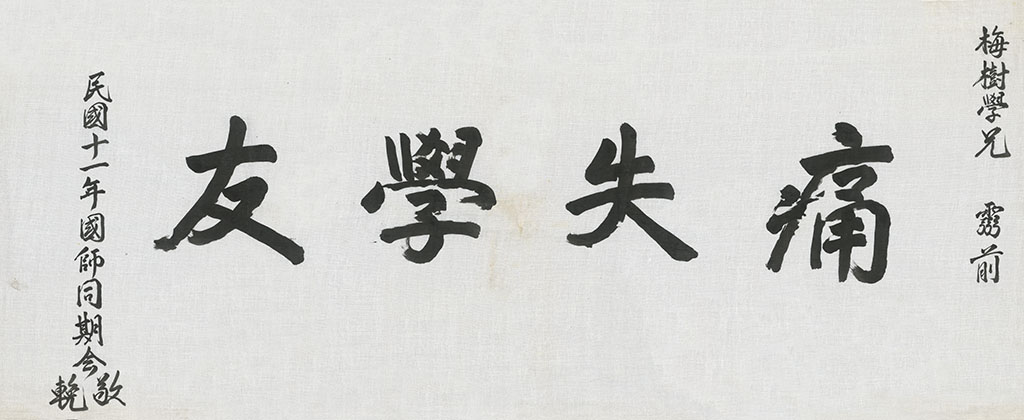 梅樹學兄 靈前
痛失學友
民國十一年國師同期会敬輓